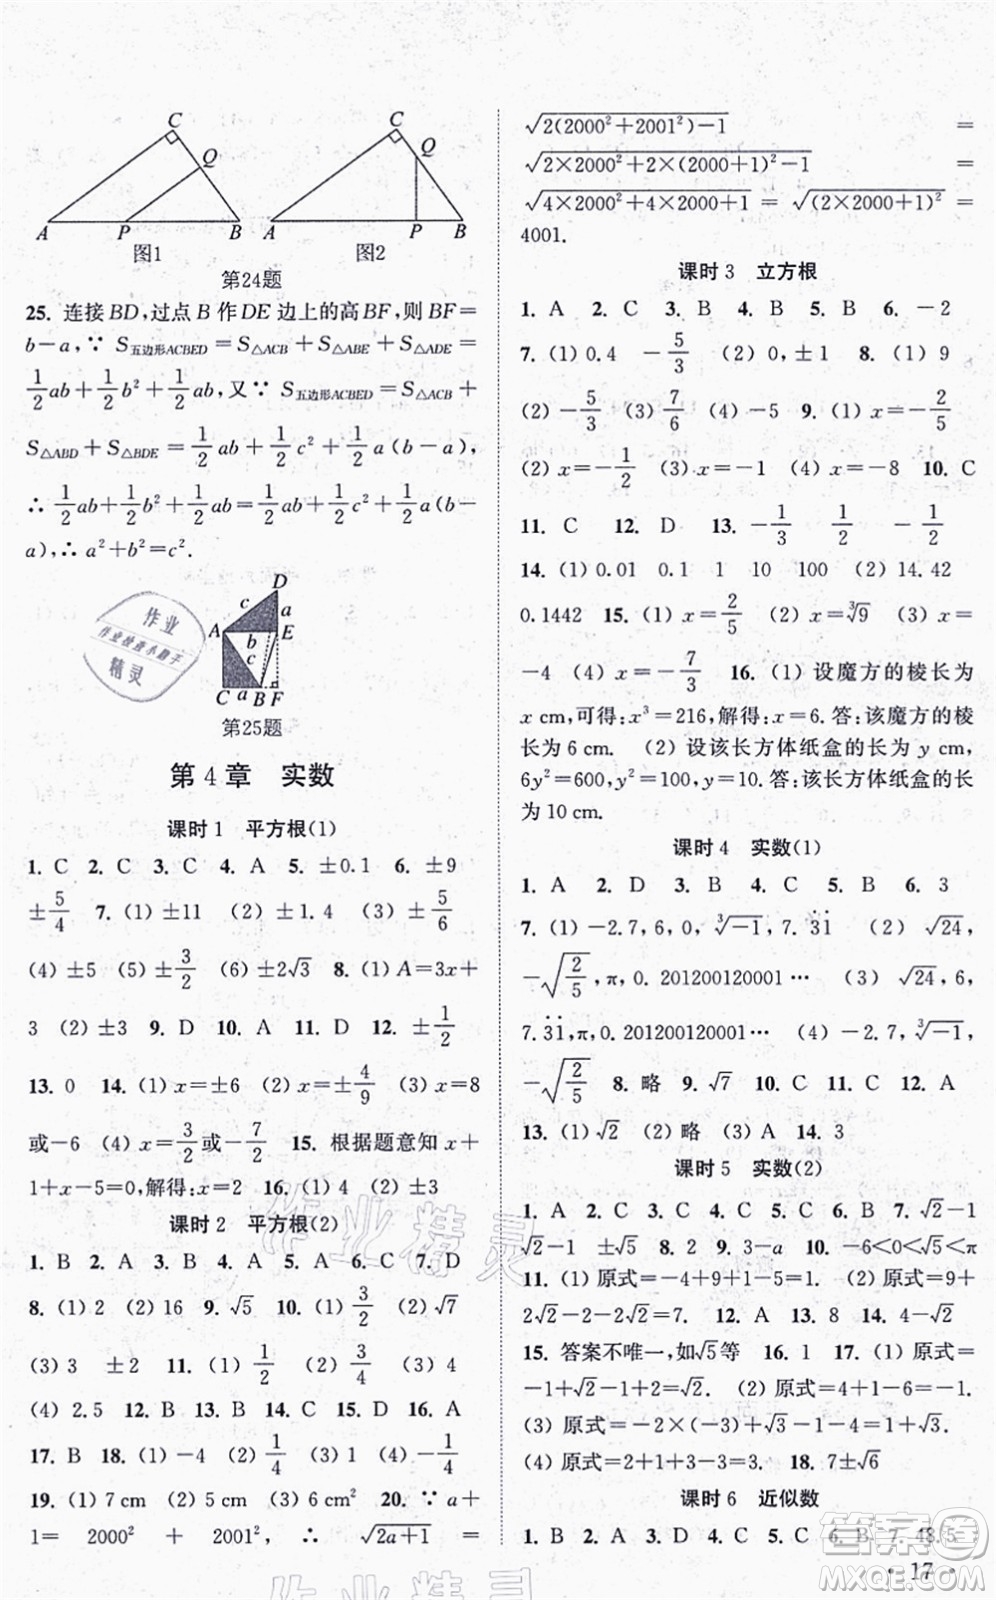 C
Q
A P B
图1
C
Q
A P B
图2
第24题
25. 连接BD,过点B作DE边上的高BF,则BF=
b-a,∵ S五边形ACBED=S△ACB+S△ABE+S△ADE=
1/2ab+1/2b²+1/2ab,又∵ S五边形ACBED=S△ACB+
S△ABD+S△BDE=1/2ab+1/2c²+1/2a(b-a),
∴1/2ab+1/2b²+1/2ab=1/2ab+1/2c²+1/2a(b-
a),∴a²+b²=c².
D
c a
A b E
c
C a B F
第25题
第4章 实数
课时1 平方根(1)
1. C 2. C 3. C 4. A 5. ±0.1 6. ±9
±5/4 7. (1)±11 (2)±1.4 (3)±5/6
(4)±5 (5)±3/2 (6)±2√3 8. (1)A=3x+
3 (2)±3 9. D 10. A 11. D 12. ±1/2
13. 0 14. (1)x=±6 (2)x=±4/9 (3)x=8
或-6 (4)x=3/2或-7/2 15. 根据题意知x+
1+x-5=0,解得:x=2 16. (1)4 (2)±3
课时2 平方根(2)
1. B 2. B 3. A 4. A 5. A 6. C 7. D
8. (1)2 (2)16 9. √5 10. (1)3/2 (2)√7
(3)3 ±2 11. (1)1/2 (2)3/4 (3)4
(4)2.5 12. B 13. B 14. B 15. D 16. A
17. B 18. (1)-4 (2)1/4 (3)1 (4)-1/4
19. (1)7 cm (2)7 cm (3)6 cm² 20. ∵a+
1= 2000² + 2001², ∴ √(2a+1) =
√(2(2000²+2001²)-1) =
√(2×2000²+2×(2000+1)²-1) =
√(4×2000²+4×2000+1) = √((2×2000+1)²) =
4001.
课时3 立方根
1. A 2. C 3. B 4. B 5. B 6. -2
7. (1)0.4 -5/3 (2)0,±1 8. (1)9
(2)-5/3 (3)7/6 (4)-5 9. (1)x=-2/5
(2)x=-1/2 (3)x=-1 (4)x=-8 10. C
11. C 12. D 13. -1/3 1/2 -1/2
14. (1)0.01 0.1 1 10 100 (2)14.42
0.1442 15. (1)x=2/5 (2)x=∛9 (3)x=
-4 (4)x=-7/3 16. (1)设魔方的棱长为
x cm,可得:x³=216,解得:x=6.答:该魔方的棱
长为6 cm. (2)设该长方体纸盒的长为y cm,
6y²=600,y²=100,y=10.答:该长方体纸盒的长
为10 cm.
课时4 实数(1)
1. A 2. D 3. B 4. C 5. B 6. 3
7. (1)-2.7,6,0,∛-1,7.3̇1̇ (2)√24,
-√(2/5),π,0.201200120001… (3)√24,6,
7.3̇1̇,π,0.201200120001… (4)-2.7,∛-1,
-√(2/5) 8. 略 9. √7 10. C 11. C 12. A
13. (1)√2 (2)略 (3)A 14. 3
课时5 实数(2)
1. A 2. C 3. D 4. D 5. C 6. B 7. √2-1
√2-1 ±√5 8. C 9. 3-a 10. -6<0<√5<π
11. (1)原式=-4+9+1-1=5 (2)原式=9+
2√2-2-2√2=7. 12. A 13. 8 14. 4-√2
15. 答案不唯一,如√5等 16. 1 17. (1)原式=
-1+√2-1+2=√2. (2)原式=-4+4+6=-1.
(3)原式=-2×(-3)+√3-1-4=1+√3.
(4)原式=2+4-3-3=0. 18. 7±√6
课时6 近似数
1. B 2. A 3. D 4. D 5. C 6. B 7. 48.5
· 17 ·
作业
作业检查小助手
精灵
作业精灵
作业精灵
答案圈
MXQE.COM